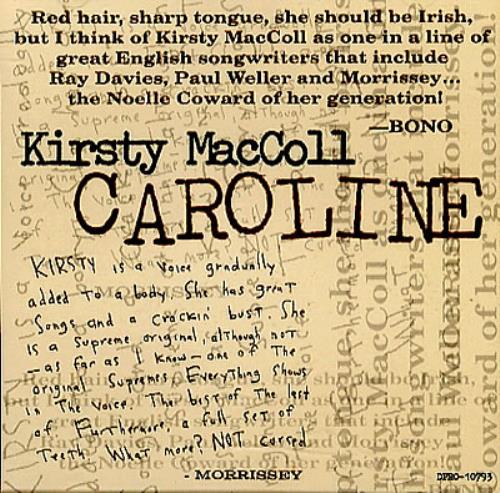 Red hair, sharp tongue, she should be Irish,
but I think of Kirsty MacColl as one in a line of
great English songwriters that include
Ray Davies, Paul Weller and Morrissey...
the Noelle Coward of her generation!
—BONO
Kirsty MacColl
CAROLINE
KIRSTY is a voice gradually
added to a body. She has great
Songs and a crackin' bust. She
is a supreme original, although not
-as far as I know- one of The
original Supremes. Everything shows
in The voice. The best of The last
of. Furthermore, a full set of
Teeth. What more? NOT cursed.
- MORRISSEY
DPRO-10793